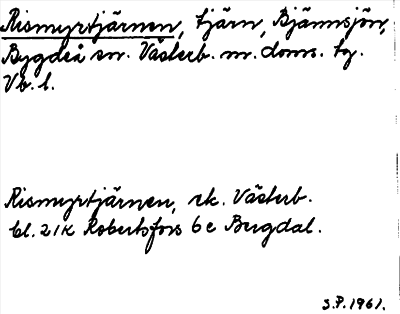 Rismyrtjärnen, tjärn, Bjännsjön,
Bygdeå sn. Västerb. m. doms. tg.
Vb. l.
Rismyrtjärnen, ek. Västerb.
bl. 21K Robertsfors 6 e Bergdal.
S.P. 1961.